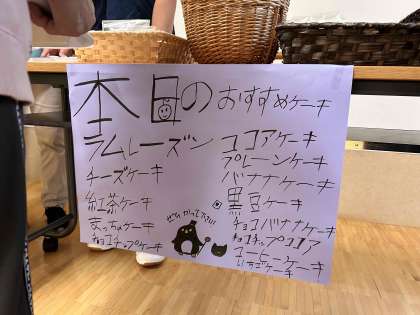 本日のおすすめケーキ
ラムレーズン
チーズケーキ
紅茶ケーキ
まっちゃケーキ
チョコチップケーキ
ココアケーキ
プレーンケーキ
バナナケーキ
黒豆ケーキ
チョコバナナケーキ
チョコチップココア
コーヒーケーキ
ぜひかって下さい